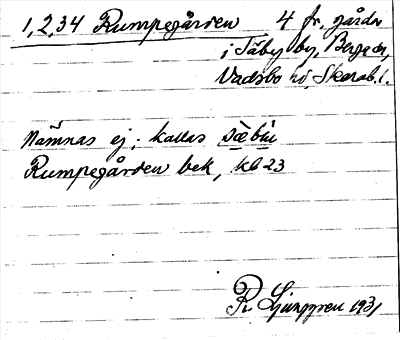 1,2,34 Rumpegården 4 fr. gårdar
i Täby by, Berga sn,
Vadsbo hd, Skarab. l.
Nämnas ej; kallas sæbiu
Rumpegården bek, kb 23
R. Ljunggren 1931